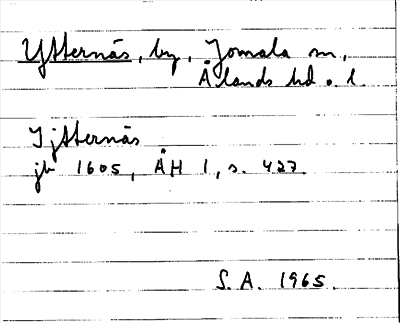 Ytternäs, by, Jomala sn,
Ålands hd o. l.
Ijtternäs
jb 1605, ÅH 1, s. 427.
S. A. 1965.